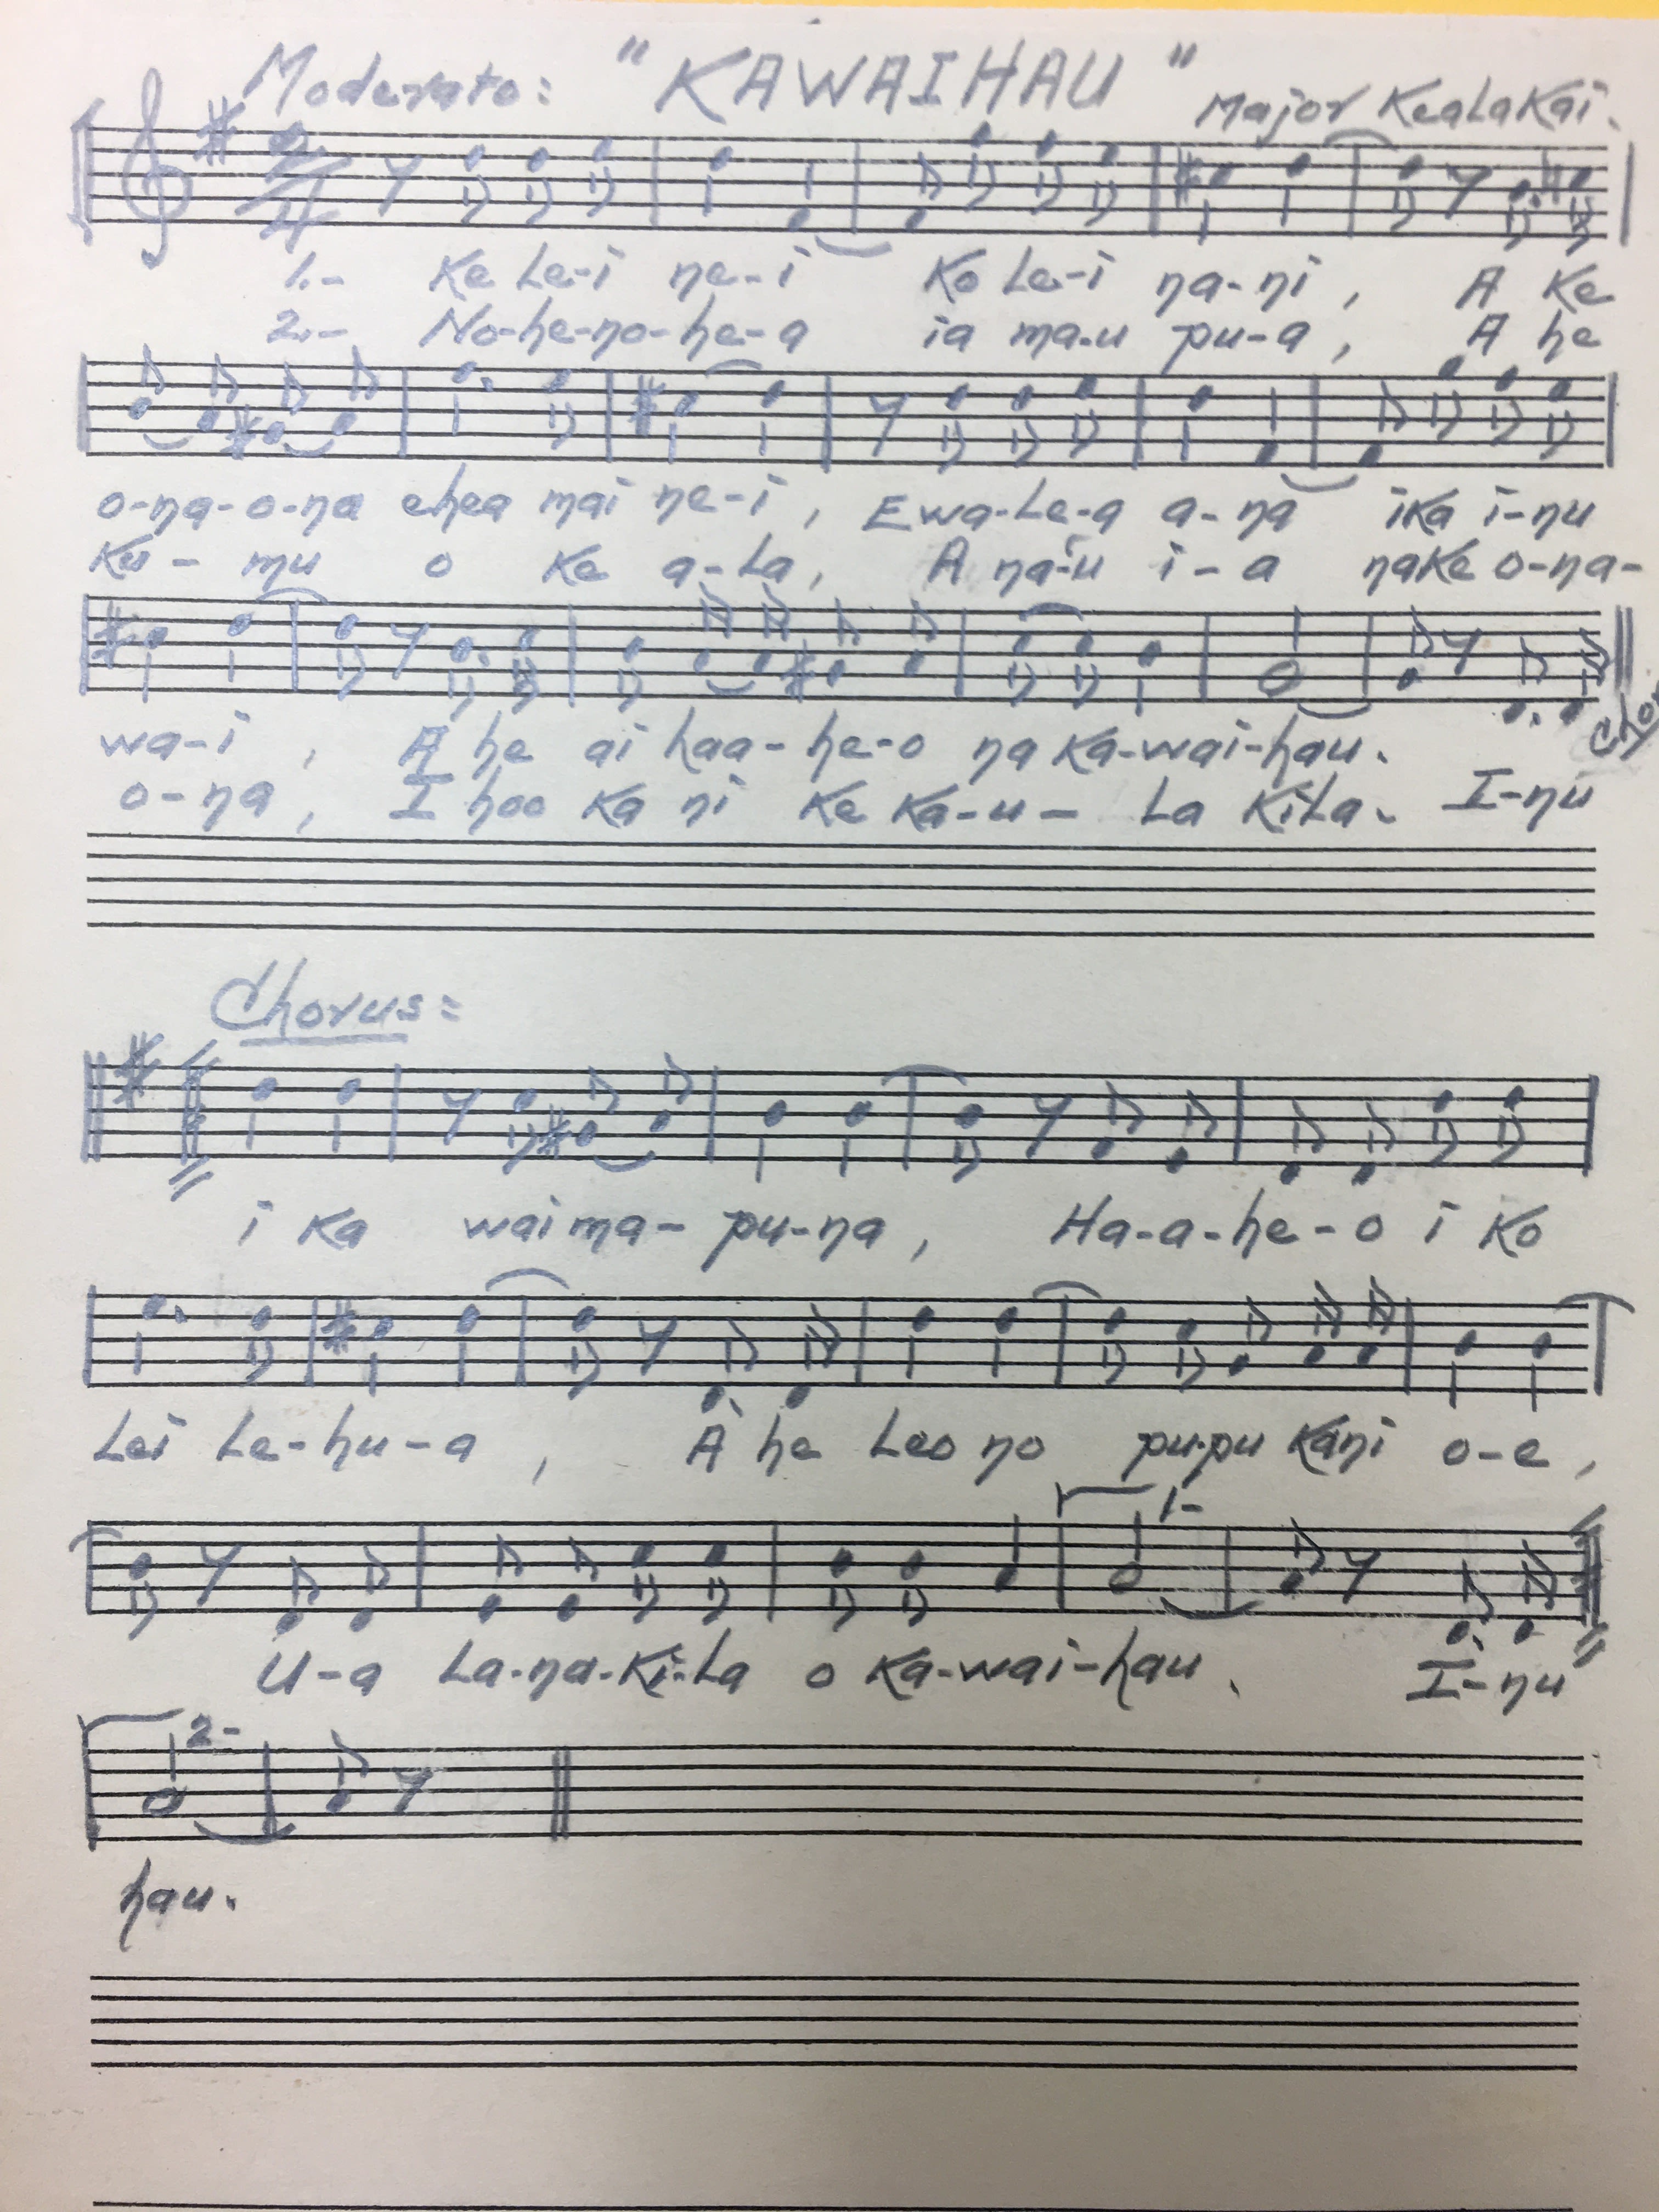 Moderato: "KAWAIHAU" Major KeaLaKai.
2/4
1.- Ke Le-i ne-i Ko Le-i na-ni, A Ke
2.- No-he-no-he-a ia ma-u pu-a, A he
o-na-o-na ehea mai ne-i, E wa-Le-a a-na iKa i-nu
Ku-mu o Ke a-La, A na-u i-a naKe o-na-
wa-i, A he ai haa-he-o na Ka-wai-hau.
o-na, I hoo Ka ni Ke Ka-u-La KiLa. I-nu
Chorus=
i Ka wai ma-pu-na, Ha-a-he-o i Ko
Lei Le-hu-a, A he Leo no pu-pu Kani o-e,
1-
U-a La-na-Ki-La o Ka-wai-hau. I-nu
2-
hau.